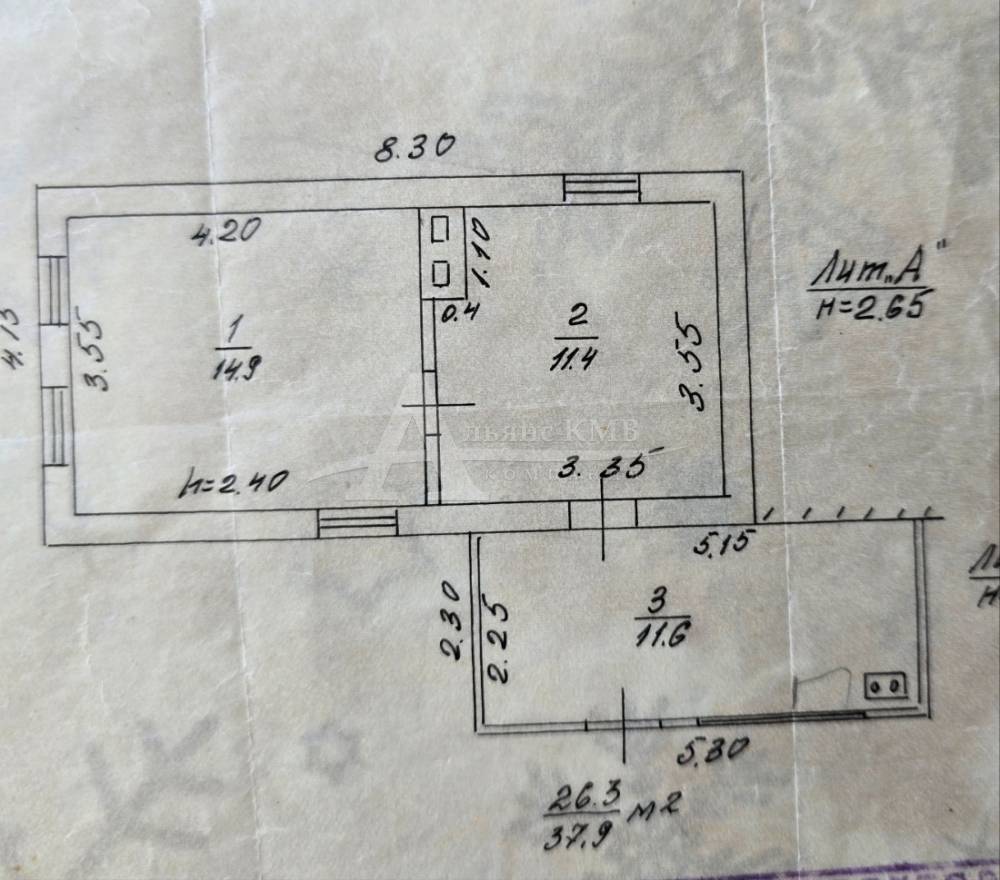 8.30
4.20
1.10
0.4
Лит„А"
н=2.65
4.15
3.55
1
14.9
2
11.4
3.55
льянс КМВ
h=2.40
3.35
5.15
2.30
2.25
3
11.6
5.30
26.3
37.9 м2